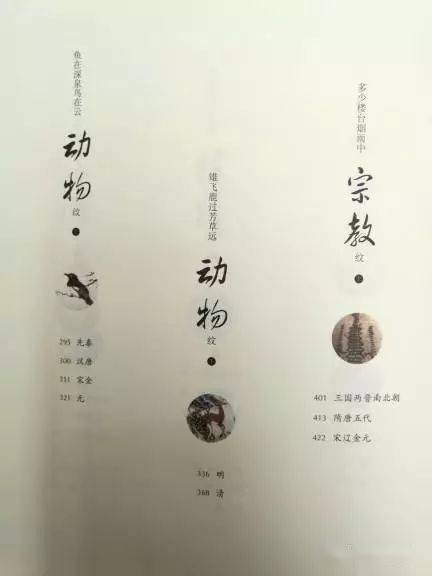 鱼在深泉鸟在云
动物纹 上
295 先秦
300 汉唐
311 宋金
321 元
雉飞鹿过芳草远
动物纹 下
336 明
368 清
多少楼台烟雨中
宗教纹 上
401 三国两晋南北朝
413 隋唐五代
422 宋辽金元